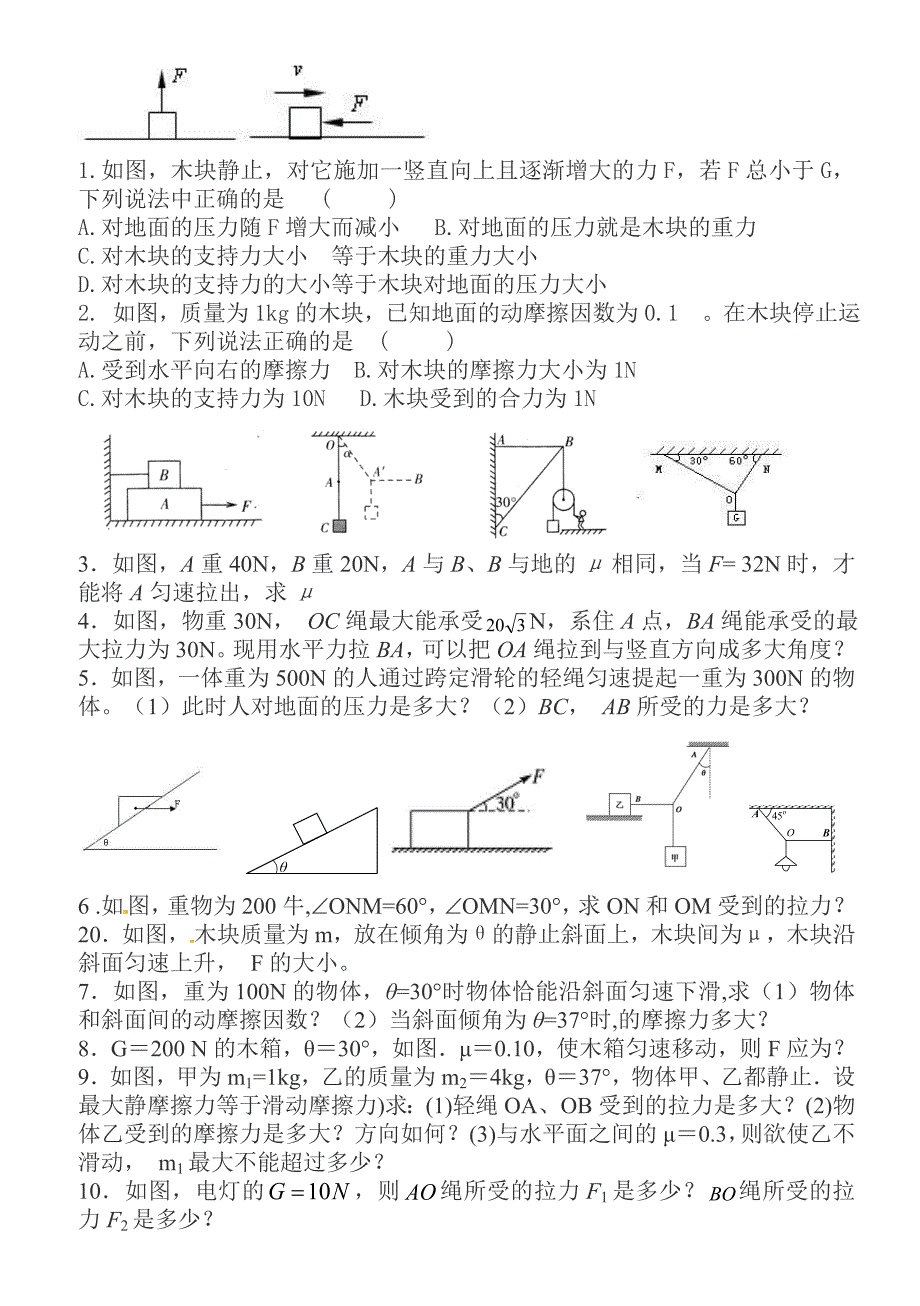 F
v
F
1.如图，木块静止，对它施加一竖直向上且逐渐增大的力F，若F总小于G，
下列说法中正确的是 （ ）
A.对地面的压力随F增大而减小 B.对地面的压力就是木块的重力
C.对木块的支持力大小 等于木块的重力大小
D.对木块的支持力的大小等于木块对地面的压力大小
2. 如图,质量为1kg的木块，已知地面的动摩擦因数为0.1 。在木块停止运
动之前，下列说法正确的是 （ ）
A.受到水平向右的摩擦力 B.对木块的摩擦力大小为1N
C.对木块的支持力为10N D.木块受到的合力为1N
B
A
F
O
α
A
A′
B
C
A
B
30°
C
M
30°
60°
N
O
G
3．如图，A重40N，B重20N，A与B、B与地的 μ 相同，当F= 32N时，才
能将A匀速拉出，求 μ
4．如图，物重30N， OC绳最大能承受20√3N，系住A点，BA绳能承受的最
大拉力为30N。现用水平力拉BA，可以把OA绳拉到与竖直方向成多大角度？
5．如图，一体重为500N的人通过跨定滑轮的轻绳匀速提起一重为300N的物
体。（1）此时人对地面的压力是多大？（2）BC， AB所受的力是多大？
F
θ
θ
F
30°
A
θ
乙
B
O
甲
A
45°
O
B
6 .如图，重物为200牛,∠ONM=60°，∠OMN=30°，求ON和OM受到的拉力？
20．如图，木块质量为m，放在倾角为θ的静止斜面上，木块间为μ，木块沿
斜面匀速上升， F的大小。
7．如图，重为100N的物体，θ=30°时物体恰能沿斜面匀速下滑,求（1）物体
和斜面间的动摩擦因数？（2）当斜面倾角为θ=37°时,的摩擦力多大？
8．G＝200 N的木箱，θ＝30°，如图．μ＝0.10，使木箱匀速移动，则F应为？
9．如图，甲为m₁=1kg，乙的质量为m₂＝4kg，θ＝37°，物体甲、乙都静止．设
最大静摩擦力等于滑动摩擦力)求：(1)轻绳OA、OB受到的拉力是多大？(2)物
体乙受到的摩擦力是多大？方向如何？(3)与水平面之间的μ＝0.3，则欲使乙不
滑动， m₁最大不能超过多少？
10．如图，电灯的G=10N，则AO绳所受的拉力F₁是多少？BO绳所受的拉
力F₂是多少？